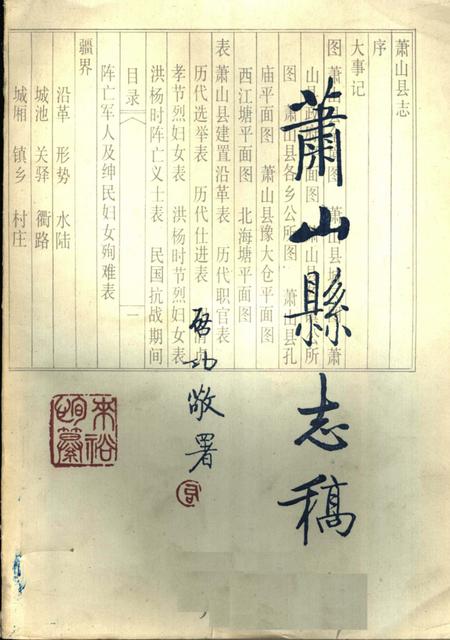 萧山县志
序
大事记
图
庙平面图 萧山县豫大仓平面图
西江塘平面图 北海塘平面图
表
萧山县建置沿革表 历代职官表
历代选举表 历代仕进表
孝节烈妇女表 洪杨时节烈妇女表
洪杨时阵亡义士表 民国抗战期间
目录 一
阵亡军人及绅民妇女殉难表
疆界
沿革 形势 水陆
城池 关驿 衢路
城厢 镇乡 村庄
蕭山縣志稿
启功敬署
来裕恂纂